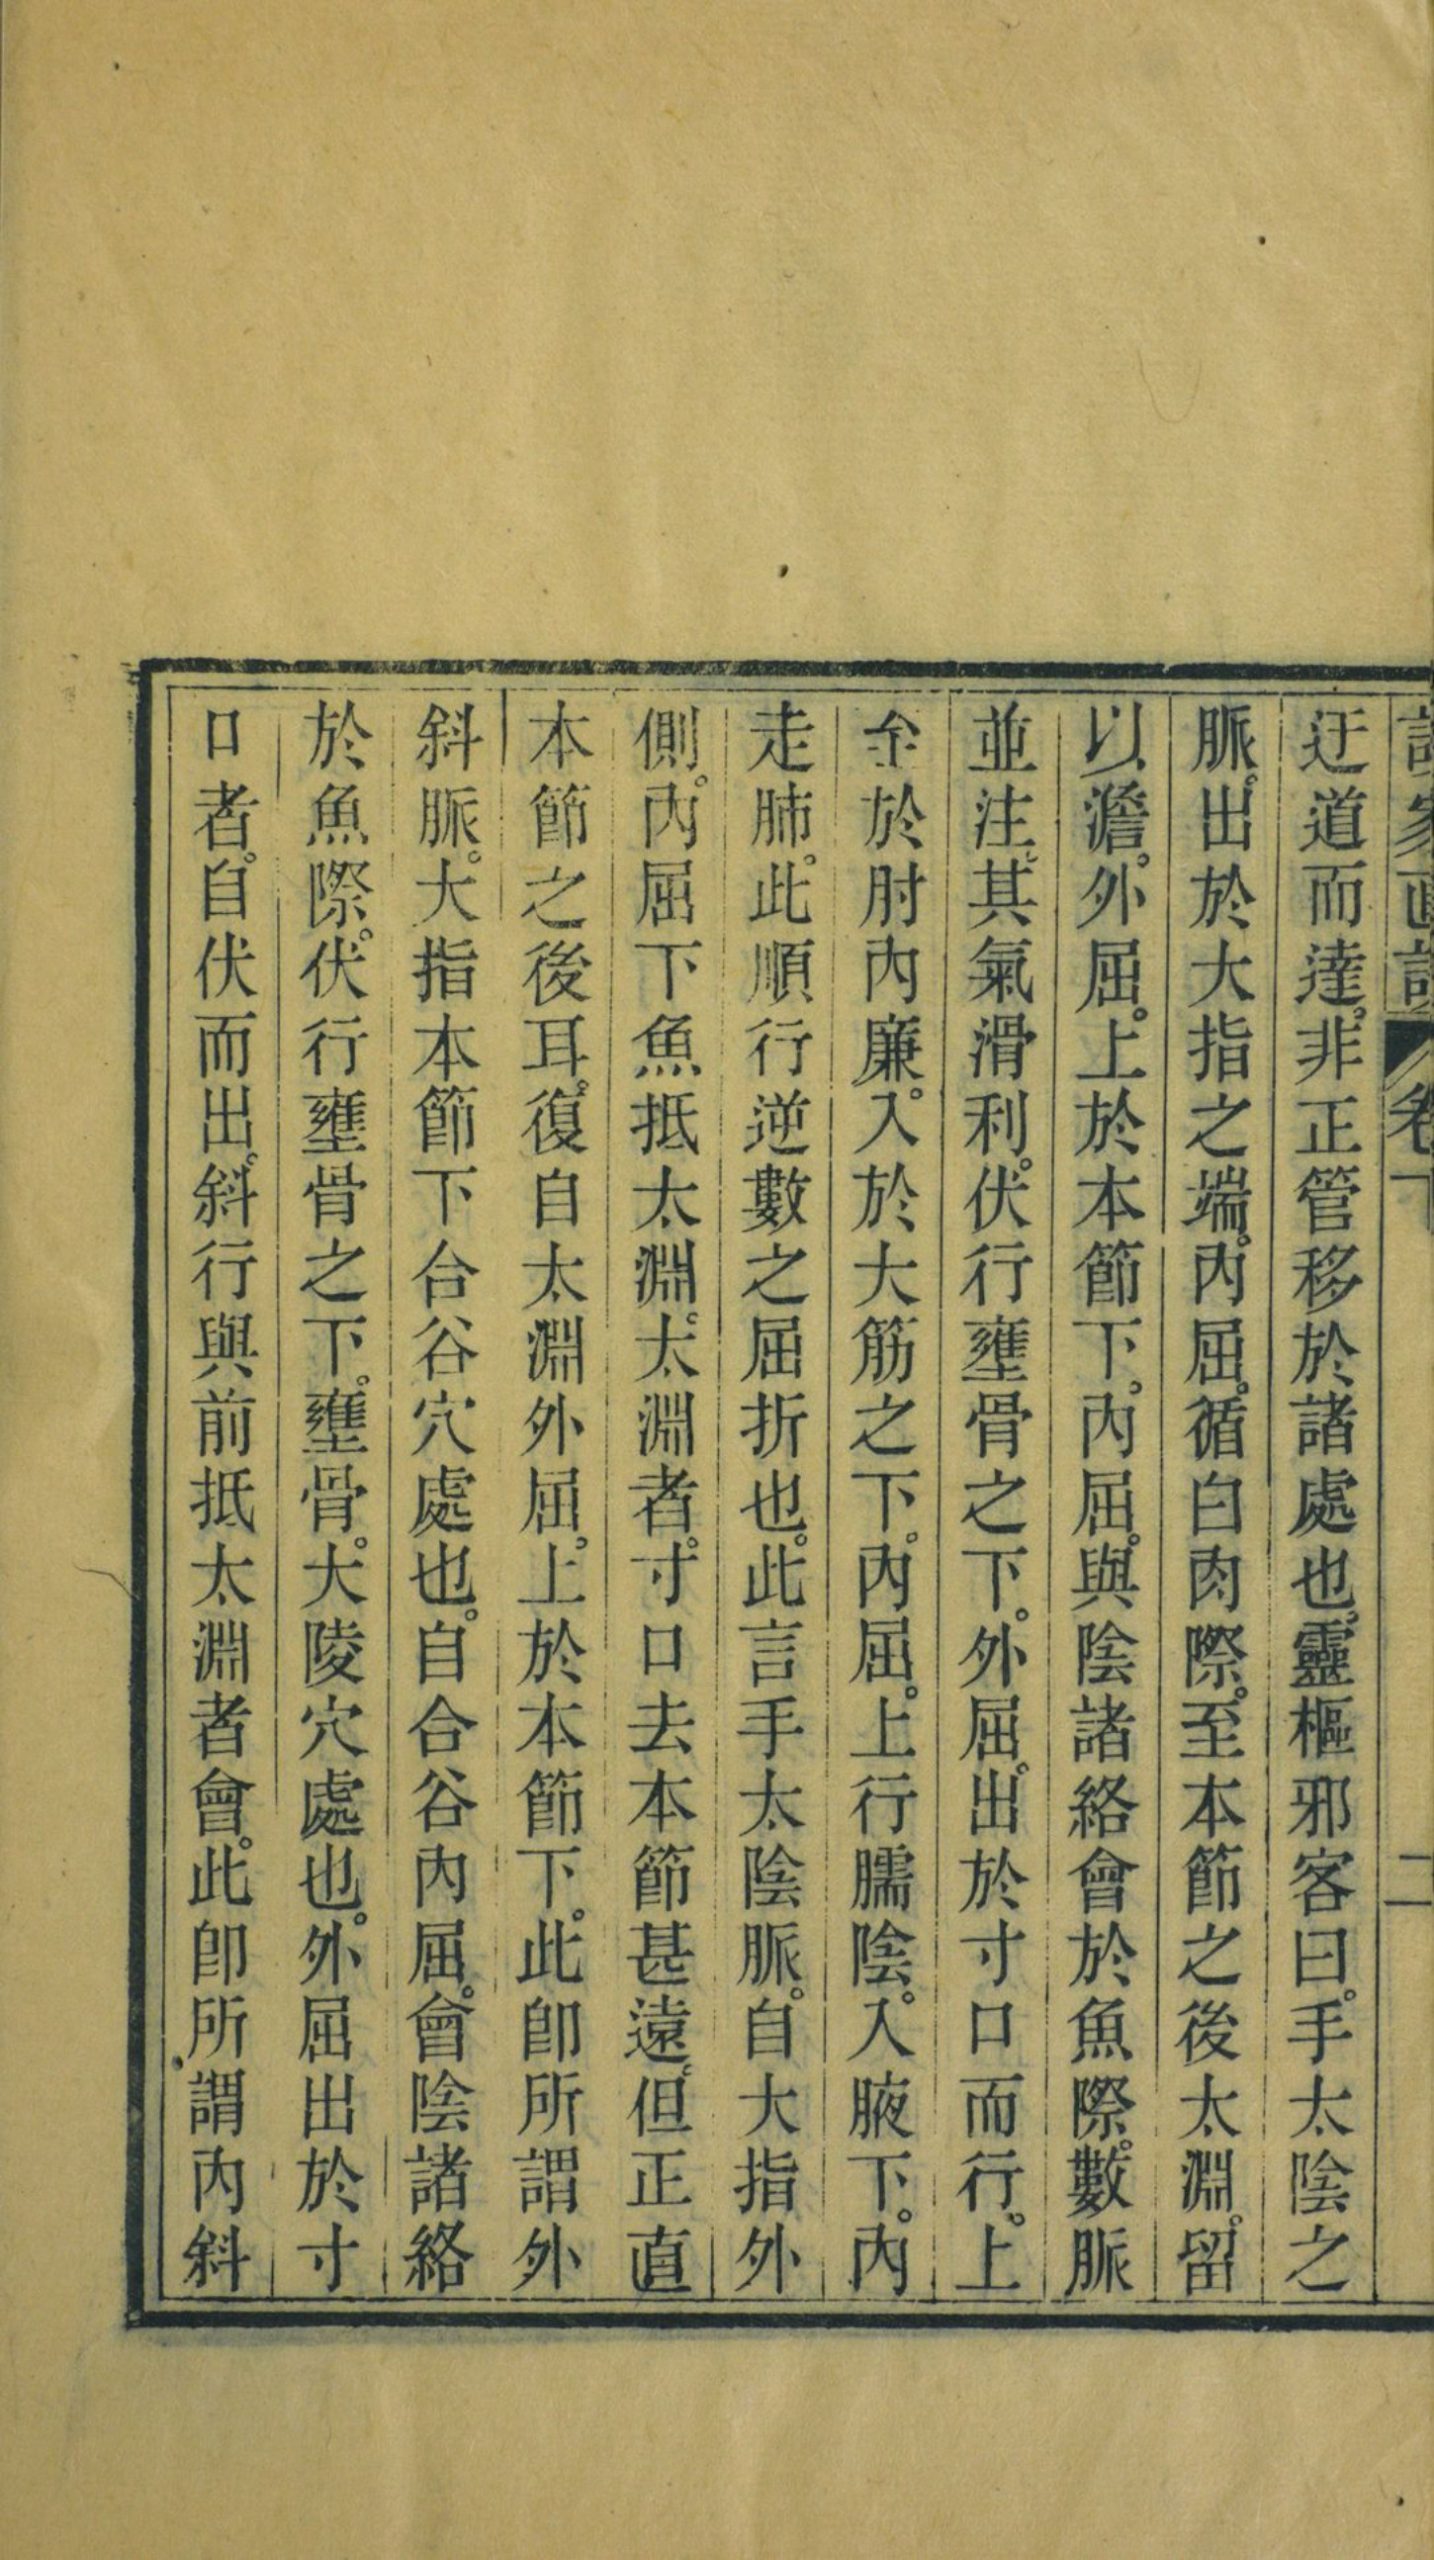 卷下
二
迂道而達。非正管移於諸處也。靈樞邪客曰。手太陰之
脈。出於大指之端。內屈。循白肉際。至本節之後太淵。留
以澹。外屈。上於本節下。內屈。與陰諸絡會於魚際。數脈
並注。其氣滑利。伏行壅骨之下。外屈。出於寸口而行。上
至於肘內廉。入於大筋之下。內屈。上行臑陰。入腋下。內
走肺。此順行逆數之屈折也。此言手太陰脈。自大指外
側。內屈下魚抵太淵。太淵者。寸口去本節甚遠。但正直
本節之後耳。復自太淵外屈。上於本節下。此卽所謂外
斜脈。大指本節下合谷穴處也。自合谷內屈。會陰諸絡
於魚際。伏行壅骨之下。壅骨。大陵穴處也。外屈出於寸
口者。自伏而出。斜行與前抵太淵者會。此卽所謂內斜